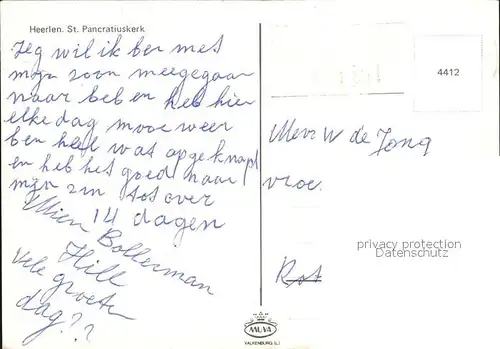 Heerlen. St. Pancratiuskerk
Zeg wil ik ben met
mijn zoon meegegaan
naar beb en heb hier
elke dag mooi weer
ben heel wat opgeknapt
en heb het goed naar
mijn zin tot over
14 dagen
Mien Bollerman
Hill
Vele groeten
dag??
4412
Mevr W de Jong
vroe
privacy protection
Datenschutz
Rot
MUVA
VALKENBURG (L.)